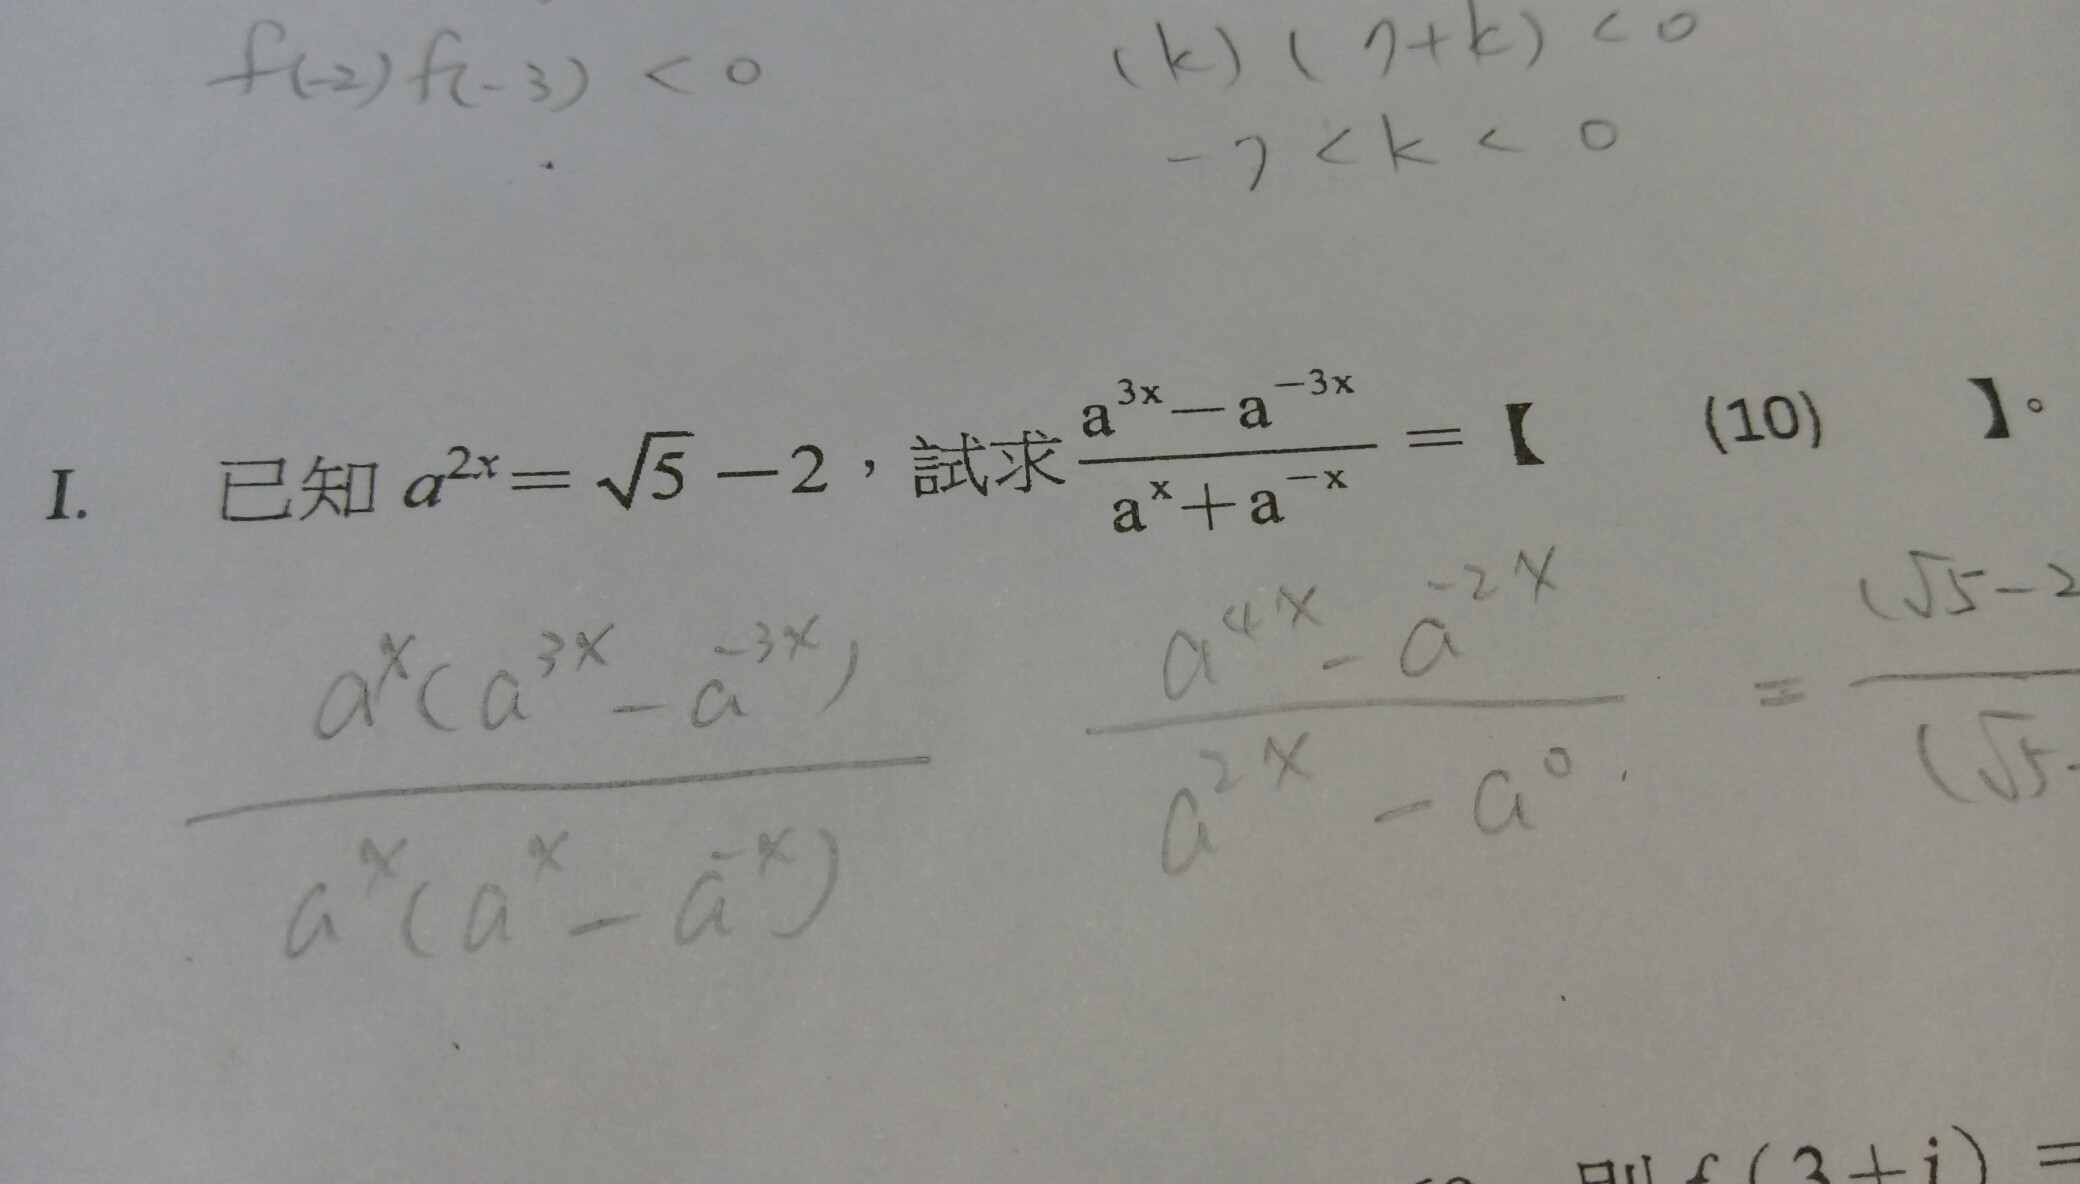 f(-2) f(-3) < 0
(k) (7+k) < 0
-7 < k < 0
I. 已知 a^{2x} = √5 - 2,試求 \frac{a^{3x} - a^{-3x}}{a^x + a^{-x}} = 【 (10) 】。
\frac{a^x(a^{3x} - a^{-3x})}{a^x(a^x - a^{-x})} \frac{a^{4x} - a^{-2x}}{a^{2x} - a^0} = \frac{(√5-2}{(√5-}
則 f(3+i) =